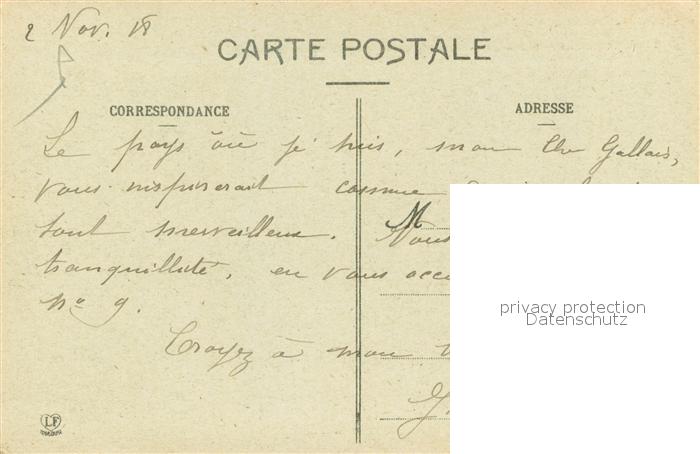 2 Nov. 18
CARTE POSTALE
CORRESPONDANCE
ADRESSE
Le pays où je suis, mon cher Gallais,
vous inspirerait comme
tout merveilleux. Vous
M
tranquillité, en vous
No 9.
Croyez à mon
LF
privacy protection
Datenschutz